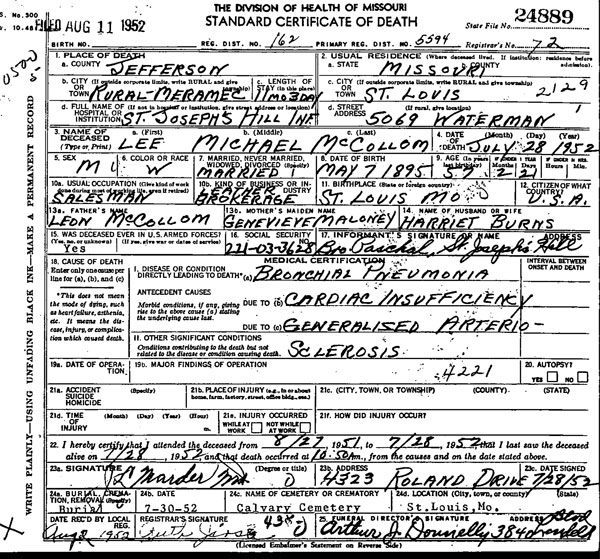 THE DIVISION OF HEALTH OF MISSOURI
STANDARD CERTIFICATE OF DEATH
FILED AUG 11 1952
State File No. 24889
BIRTH NO. REG. DIST. NO. 162 PRIMARY REG. DIST. NO. 5594 Registrar's No. 72
1. PLACE OF DEATH
a. COUNTY JEFFERSON
2. USUAL RESIDENCE (Where deceased lived. If institution: residence before admission).
a. STATE MISSOURI b. COUNTY
b. CITY (If outside corporate limits, write RURAL and give township) OR TOWN RURAL-MERAMEC
c. LENGTH OF STAY (in this place) 11 MO 3 DAY
c. CITY (If outside corporate limits, write RURAL and give township) OR TOWN ST. LOUIS 2129
d. FULL NAME OF (If not in hospital or institution, give street address or location) HOSPITAL OR INSTITUTION ST. JOSEPH'S HILL INF
d. STREET ADDRESS (If rural, give location) 5069 WATERMAN
3. NAME OF DECEASED (Type or Print) a. (First) LEE b. (Middle) MICHAEL c. (Last) MCCOLLOM
4. DATE OF DEATH (Month) (Day) (Year) JULY 28 1952
5. SEX M
6. COLOR OR RACE W
7. MARRIED, NEVER MARRIED, WIDOWED, DIVORCED (Specify) MARRIED
8. DATE OF BIRTH MAY 7 1895
9. AGE 57 2 21
10a. USUAL OCCUPATION (Give kind of work done during most of working life, even if retired) SALESMAN
10b. KIND OF BUSINESS OR INDUSTRY LEATHER BROKERAGE
11. BIRTHPLACE (State or foreign country) ST. LOUIS MO
12. CITIZEN OF WHAT COUNTRY? U.S.A.
13a. FATHER'S NAME LEON MCCOLLOM
13b. MOTHER'S MAIDEN NAME GENEVIEVE MALONEY
14. NAME OF HUSBAND OR WIFE HARRIET BURNS
15. WAS DECEASED EVER IN U.S. ARMED FORCES? (Yes, no, or unknown) (If yes, give war or dates of service) Yes
16. SOCIAL SECURITY NO. 221-03-3628
17. INFORMANT'S SIGNATURE OR NAME ADDRESS Bro Paschal, St. Joseph's Hill
18. CAUSE OF DEATH
Enter only one cause per line for (a), (b), and (c)
*This does not mean the mode of dying, such as heart failure, asthenia, etc. It means the disease, injury, or complication which caused death.
MEDICAL CERTIFICATION
INTERVAL BETWEEN ONSET AND DEATH
I. DISEASE OR CONDITION DIRECTLY LEADING TO DEATH* (a) BRONCHIAL PNEUMONIA
ANTECEDENT CAUSES
Morbid conditions, if any, giving rise to the above cause (a) stating the underlying cause last.
DUE TO (b) CARDIAC INSUFFICIENCY
DUE TO (c) GENERALISED ARTERIO-
II. OTHER SIGNIFICANT CONDITIONS
Conditions contributing to the death but not related to the disease or condition causing death. SCLEROSIS
19a. DATE OF OPERATION
19b. MAJOR FINDINGS OF OPERATION 4221
20. AUTOPSY? YES NO
21a. ACCIDENT SUICIDE HOMICIDE (Specify)
21b. PLACE OF INJURY (e.g., in or about home, farm, factory, street, office bldg., etc.)
21c. (CITY, TOWN, OR TOWNSHIP) (COUNTY) (STATE)
21d. TIME OF INJURY (Month) (Day) (Year) (Hour) m.
21e. INJURY OCCURRED WHILE AT WORK NOT WHILE AT WORK
21f. HOW DID INJURY OCCUR?
22. I hereby certify that I attended the deceased from 8/27 1951 to 7/28 1952 that I last saw the deceased
alive on 7/28 1952 and that death occurred at 10:50 Am, from the causes and on the date stated above.
23a. SIGNATURE (Degree or title)
23b. ADDRESS 4323 ROLAND DRIVE
23c. DATE SIGNED 7/28/52
24a. BURIAL, CREMATION, REMOVAL (Specify) Burial
24b. DATE 7-30-52
24c. NAME OF CEMETERY OR CREMATORY Calvary Cemetery
24d. LOCATION (City, town, or county) (State) St. Louis, Mo.
DATE REC'D BY LOCAL REG.
REGISTRAR'S SIGNATURE
25. FUNERAL DIRECTOR'S SIGNATURE ADDRESS Arthur J. Donnelly 3846
(Licensed Embalmer's Statement on Reverse Side)
WRITE PLAINLY—USING UNFADING BLACK INK—MAKE A PERMANENT RECORD